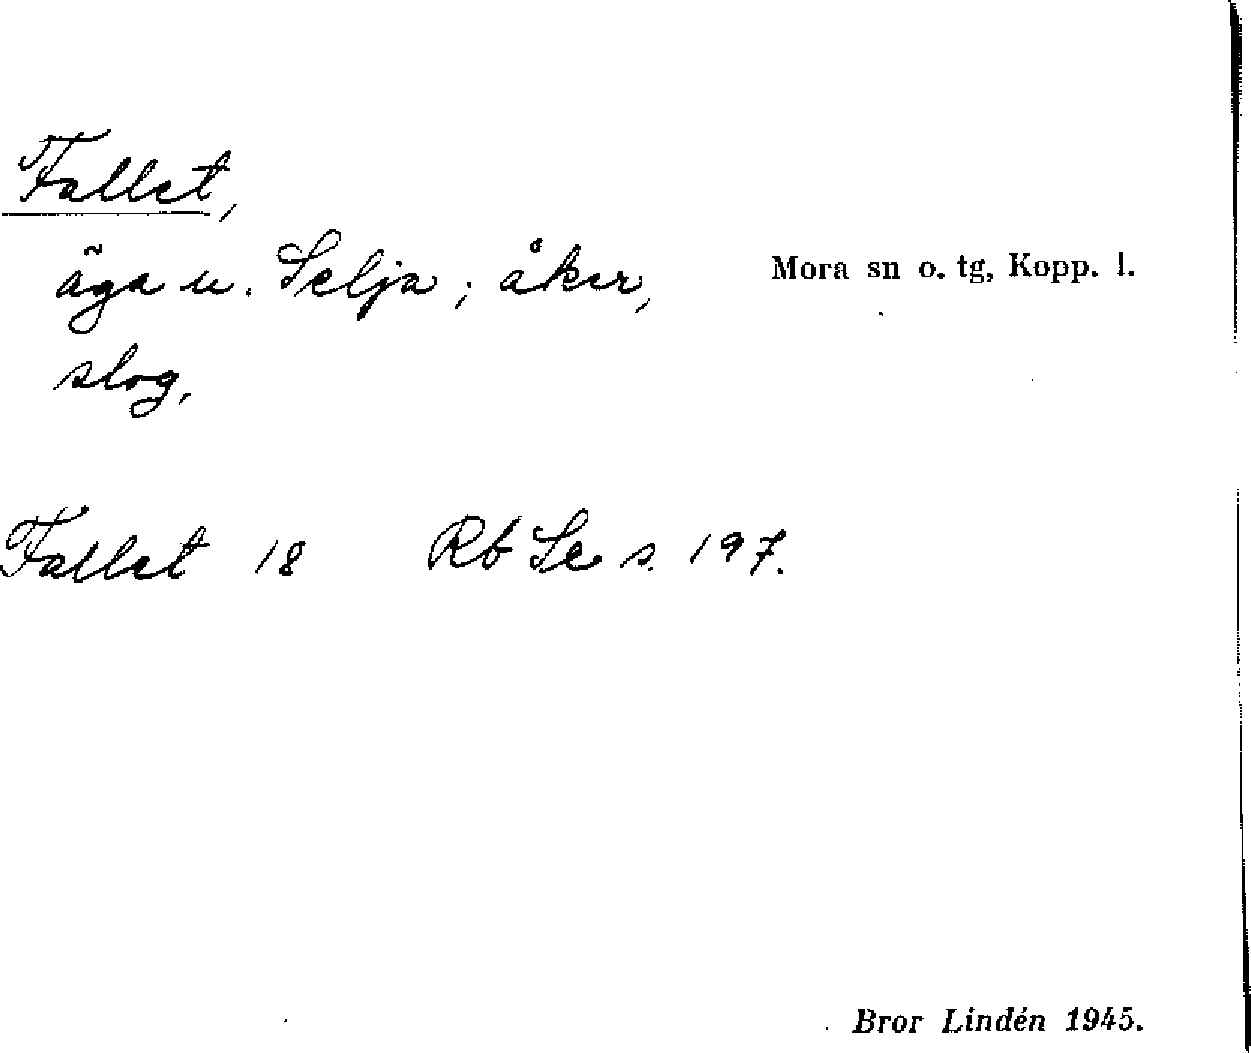 Fallet,
äga u. Selja; åker,
Mora sn o. tg, Kopp. l.
slog,
Fallet 18 Rb Se s. 197.
Bror Lindén 1945.